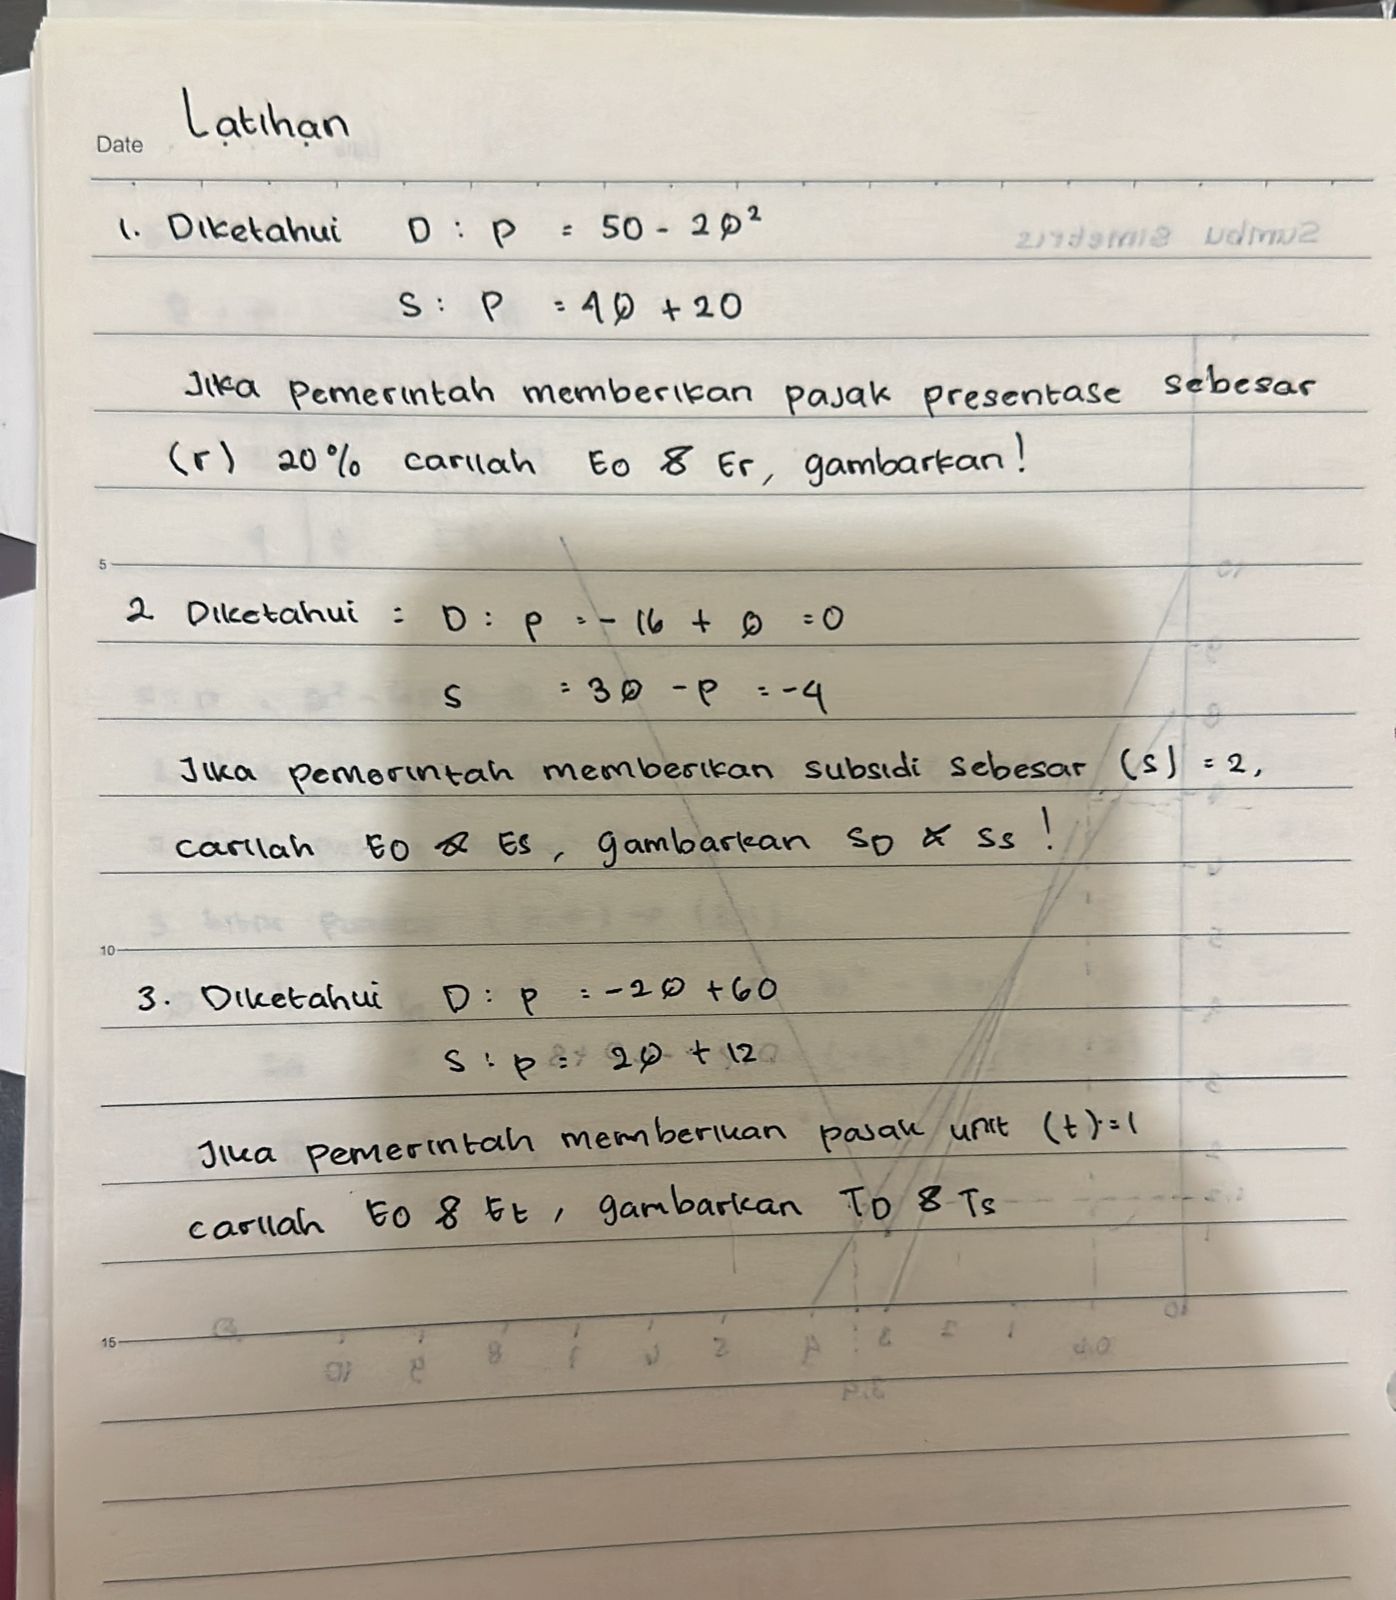 Date Latihan
1. Diketahui D : P = 50 - 2Q²
S : P = 4Q + 20
Jika pemerintah memberikan pajak presentase sebesar
(r) 20% carilah Eo & Er, gambarkan!
5
2 Diketahui = D : P = - 16 + Q = 0
S = 3Q - P = -4
Jika pemerintah memberikan subsidi sebesar (s) = 2,
carilah Eo & Es, gambarkan SD & Ss !
10
3. Diketahui D : P = -2Q + 60
S : P = 2Q + 12
Jika pemerintah memberikan pajak unit (t) = 1
carilah Eo & Et, gambarkan TD & Ts
15